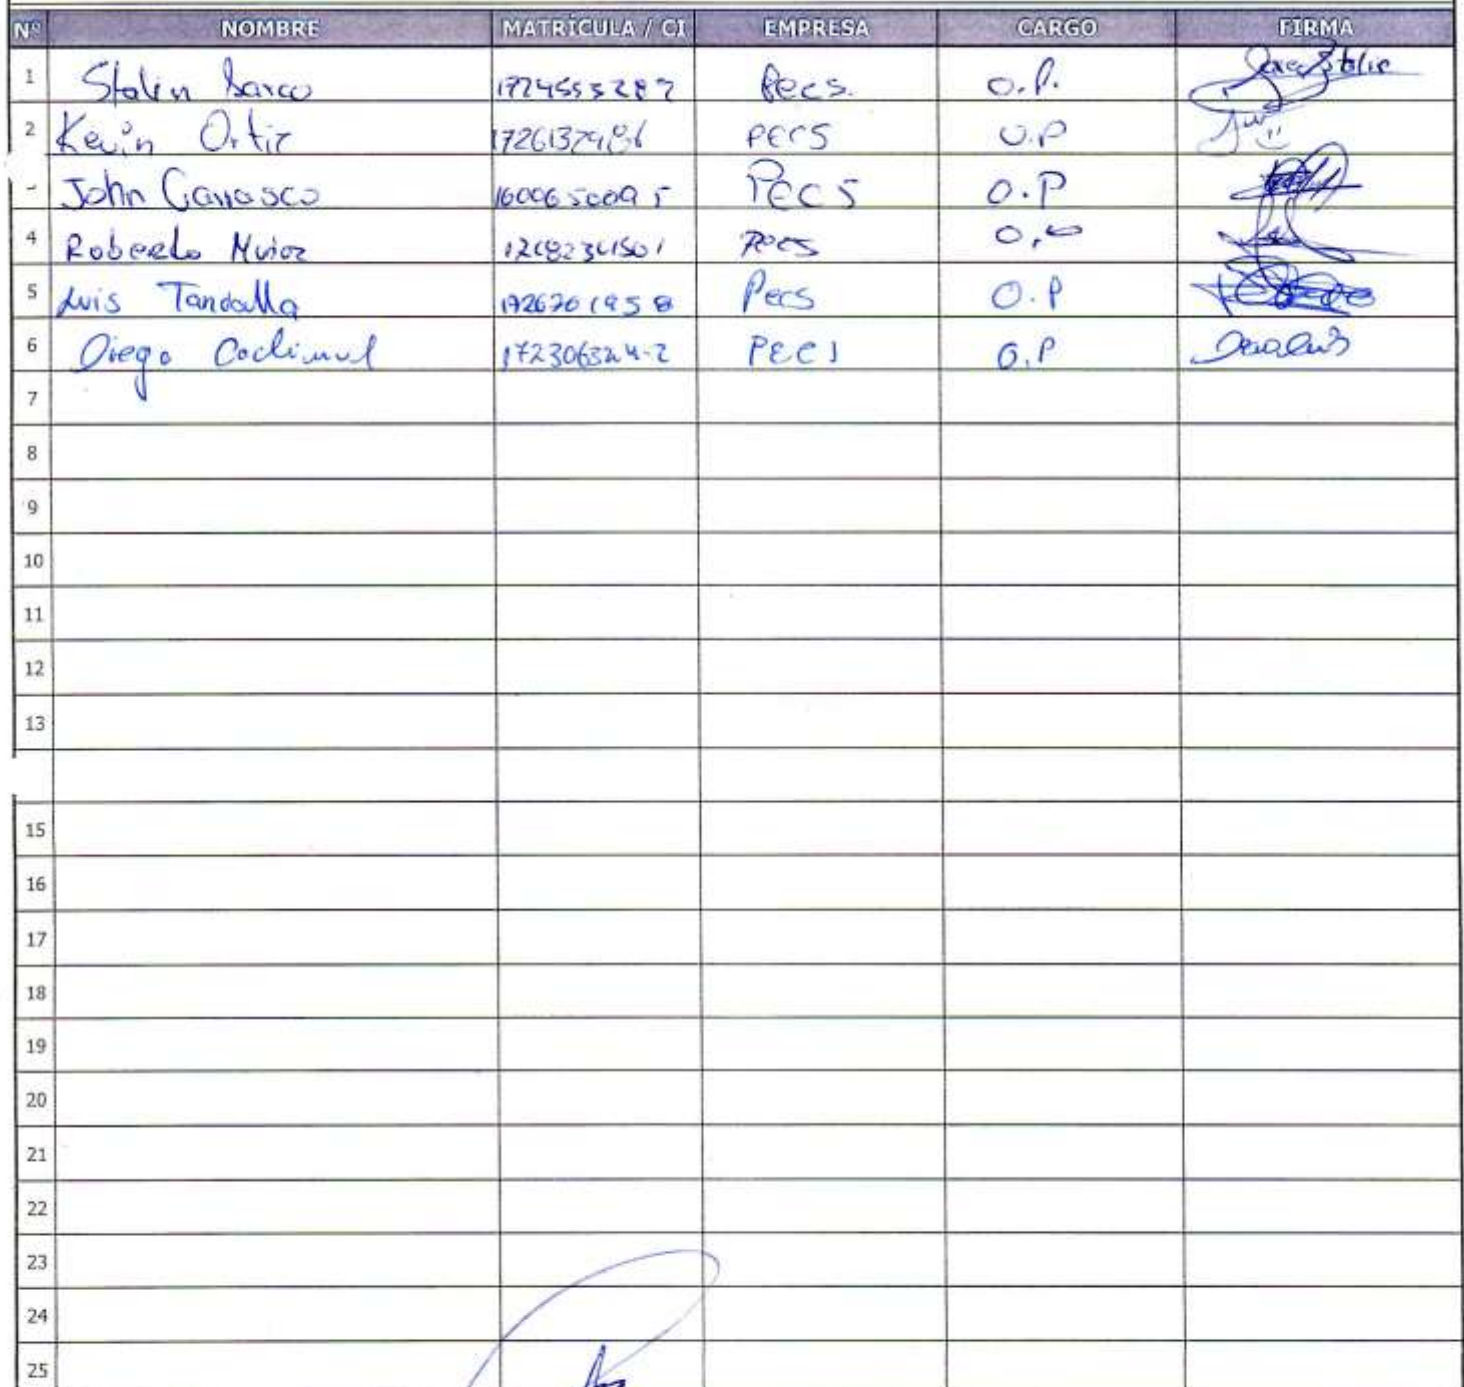 Nº NOMBRE MATRÍCULA / CI EMPRESA CARGO FIRMA
1 Stalin Barco 1724555287 Pecs. O.P.
2 Kevin Ortiz PECS O.P
John Carrasco PECS O.P
4 Roberto Muñoz Pecs
5 Luis Tandalla 1726701958 Pecs O.P
6 Diego 172306324-2 PECS O.P
7
8
9
10
11
12
13
15
16
17
18
19
20
21
22
23
24
25